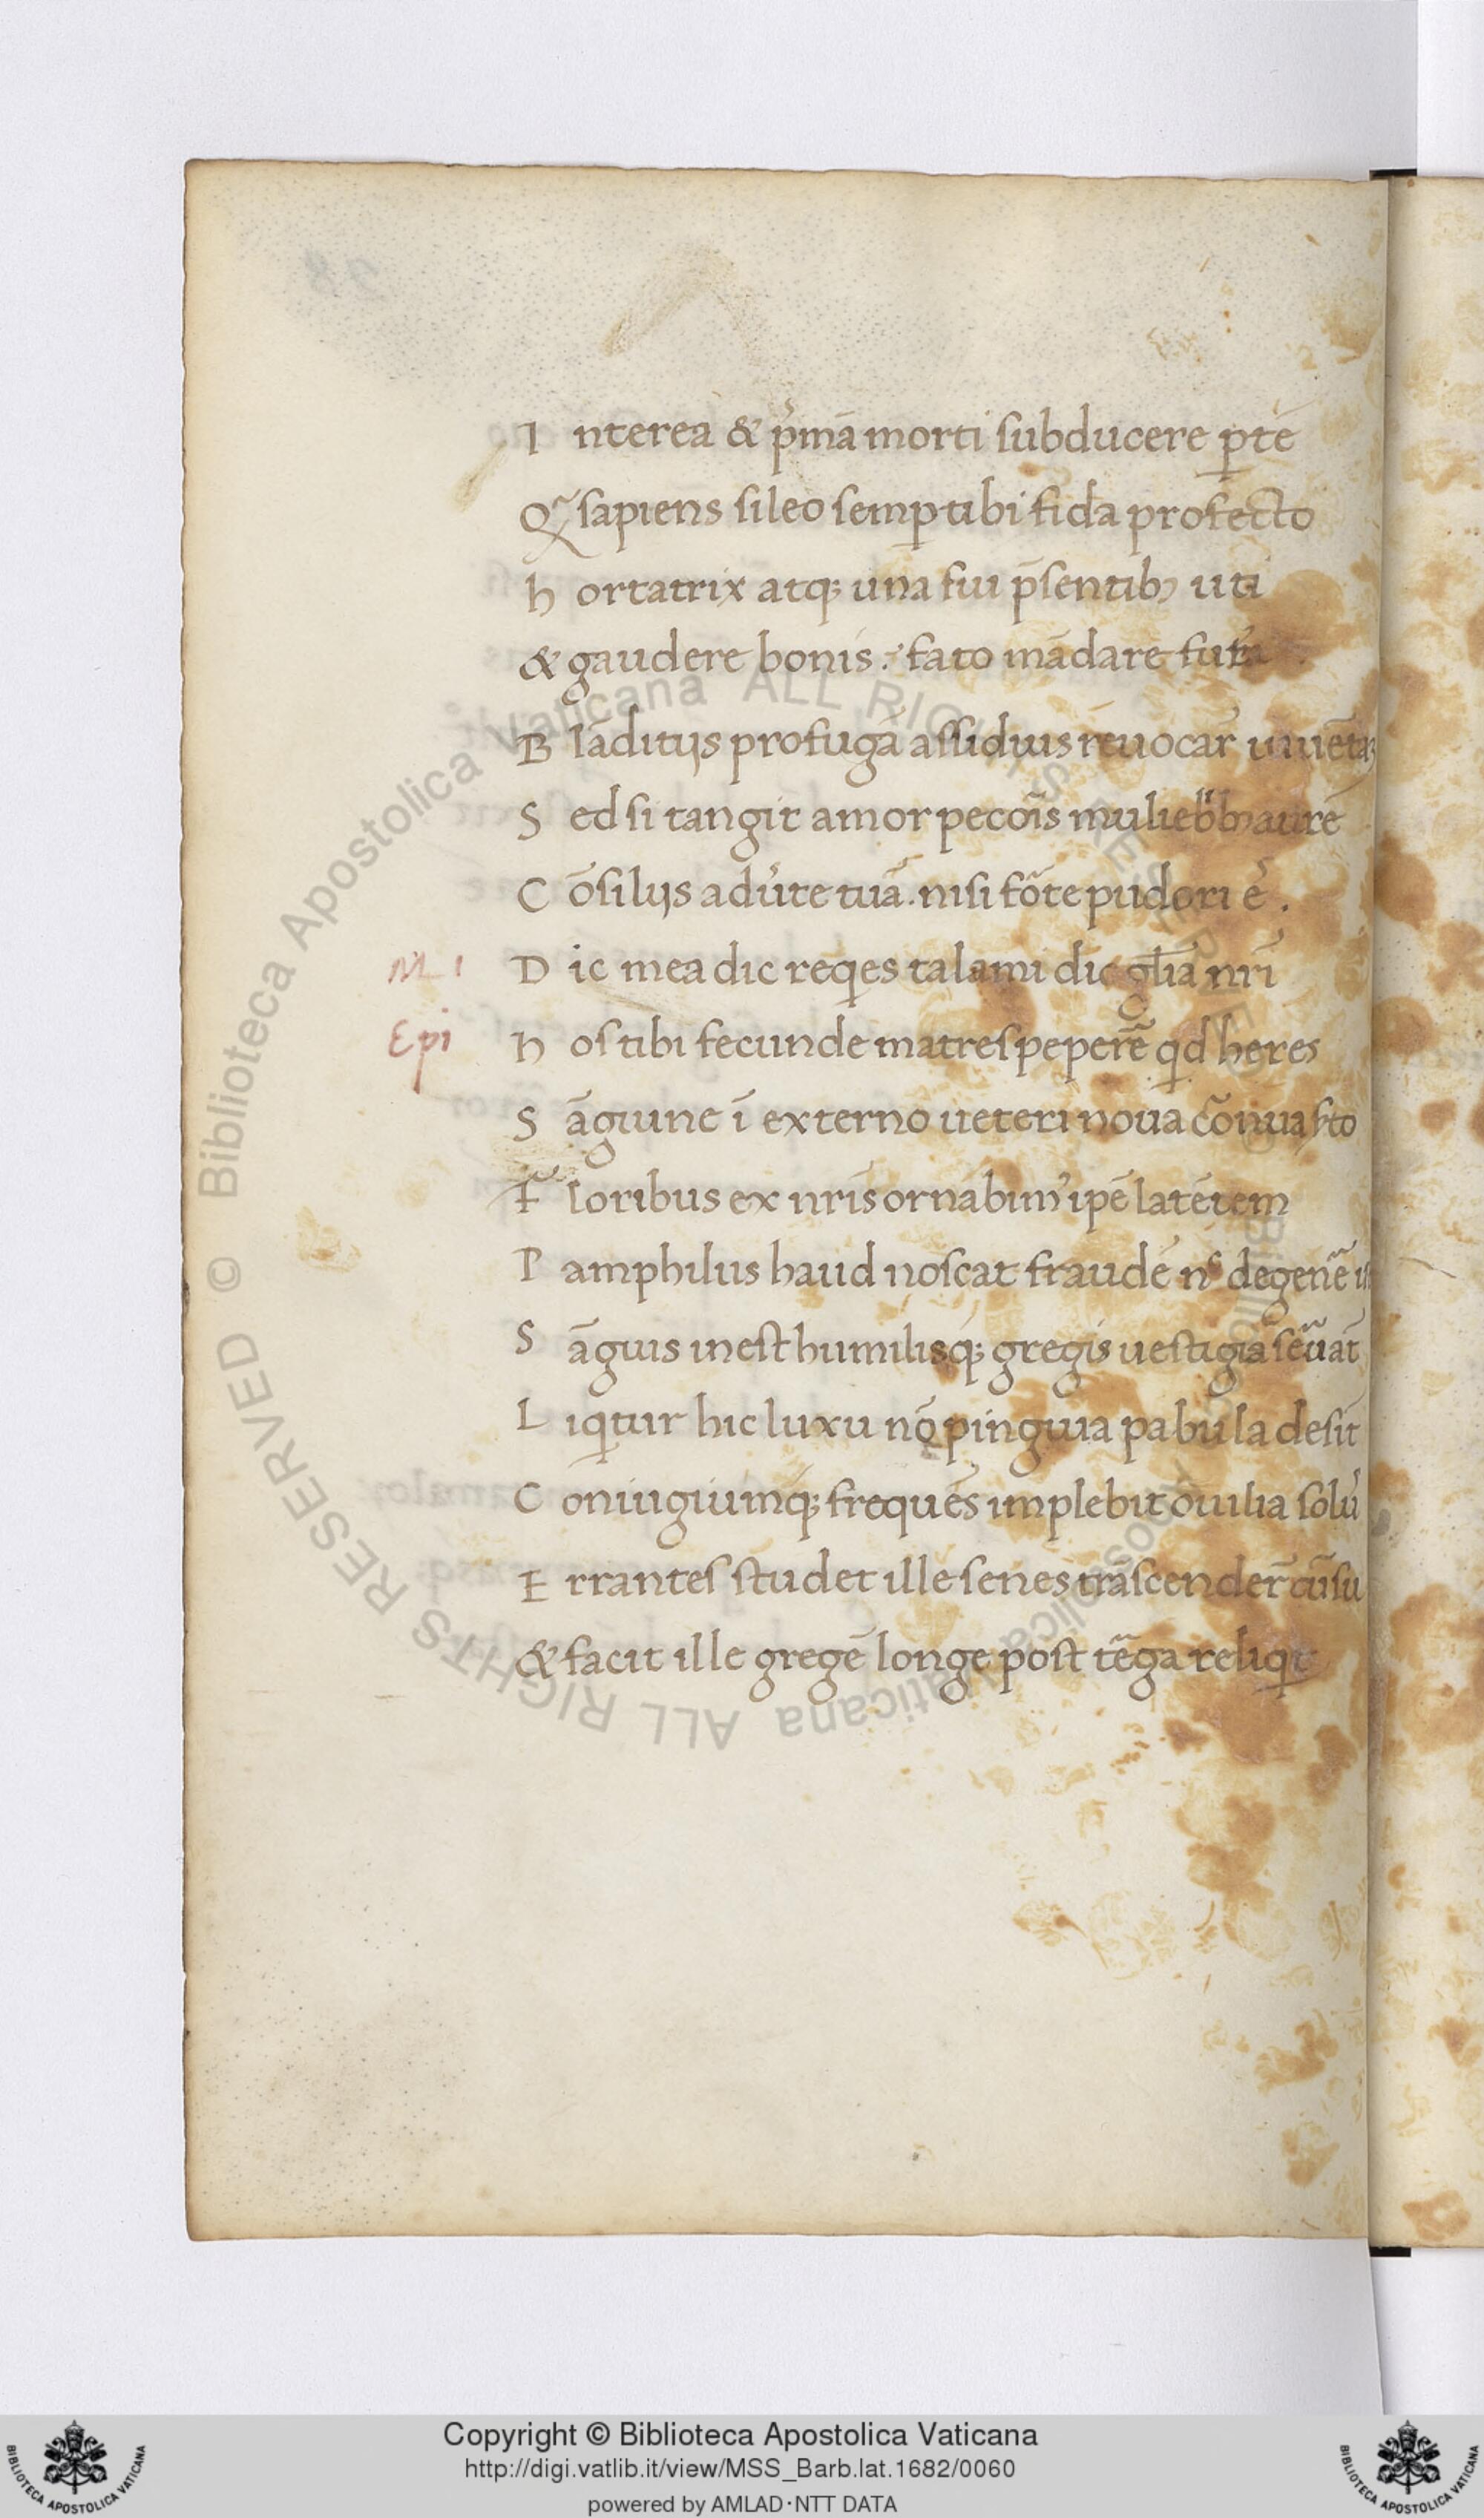 I nterea & p̾mā morti subducere ꝑtē
Qͣ sapiens sileo semꝑ tibi fida profecto
h ortatrix atq; una fui p̄sentibꝫ uti
& gaudere bonis. fato mādare fut̾a
B lāditijs profugā assiduis reuocar̄ iuuētaꝫ
S ed si tangit amor pecoı̄s muliebꝫ aurē
C ōsilijs adu̾te tuā. nisi fōte pudori ē.
M i D ic mea dic reqͥes talami dic gl̄ia nr̄i
Epi h os tibi fecunde matres peperē qͥd heres
S āguine ī externo ueteri noua
F loribus ex nr̄is ornabim᾿ ipē latētem
P amphilus haud noscat fraudē nͨ degenē
S āguis inest humilisq; gregis uestigia sēuat
L iqͥtur hic luxu nō pinguia pabula desit
C oniugiumq; frequēs implebit ouilia solu᾿
E rrantes studet ille senes trāscender̄ cūsu
& facit ille gregē longe post tēga reliqͥt
Copyright © Biblioteca Apostolica Vaticana
http://digi.vatlib.it/view/MSS_Barb.lat.1682/0060
powered by AMLAD·NTT DATA
BIBLIOTECA APOSTOLICA VATICANA
BIBLIOTECA APOSTOLICA VATICANA
© Biblioteca Apostolica Vaticana ALL RIGHTS RESERVED
© Biblioteca Apostolica Vaticana ALL RIGHTS RESERVED